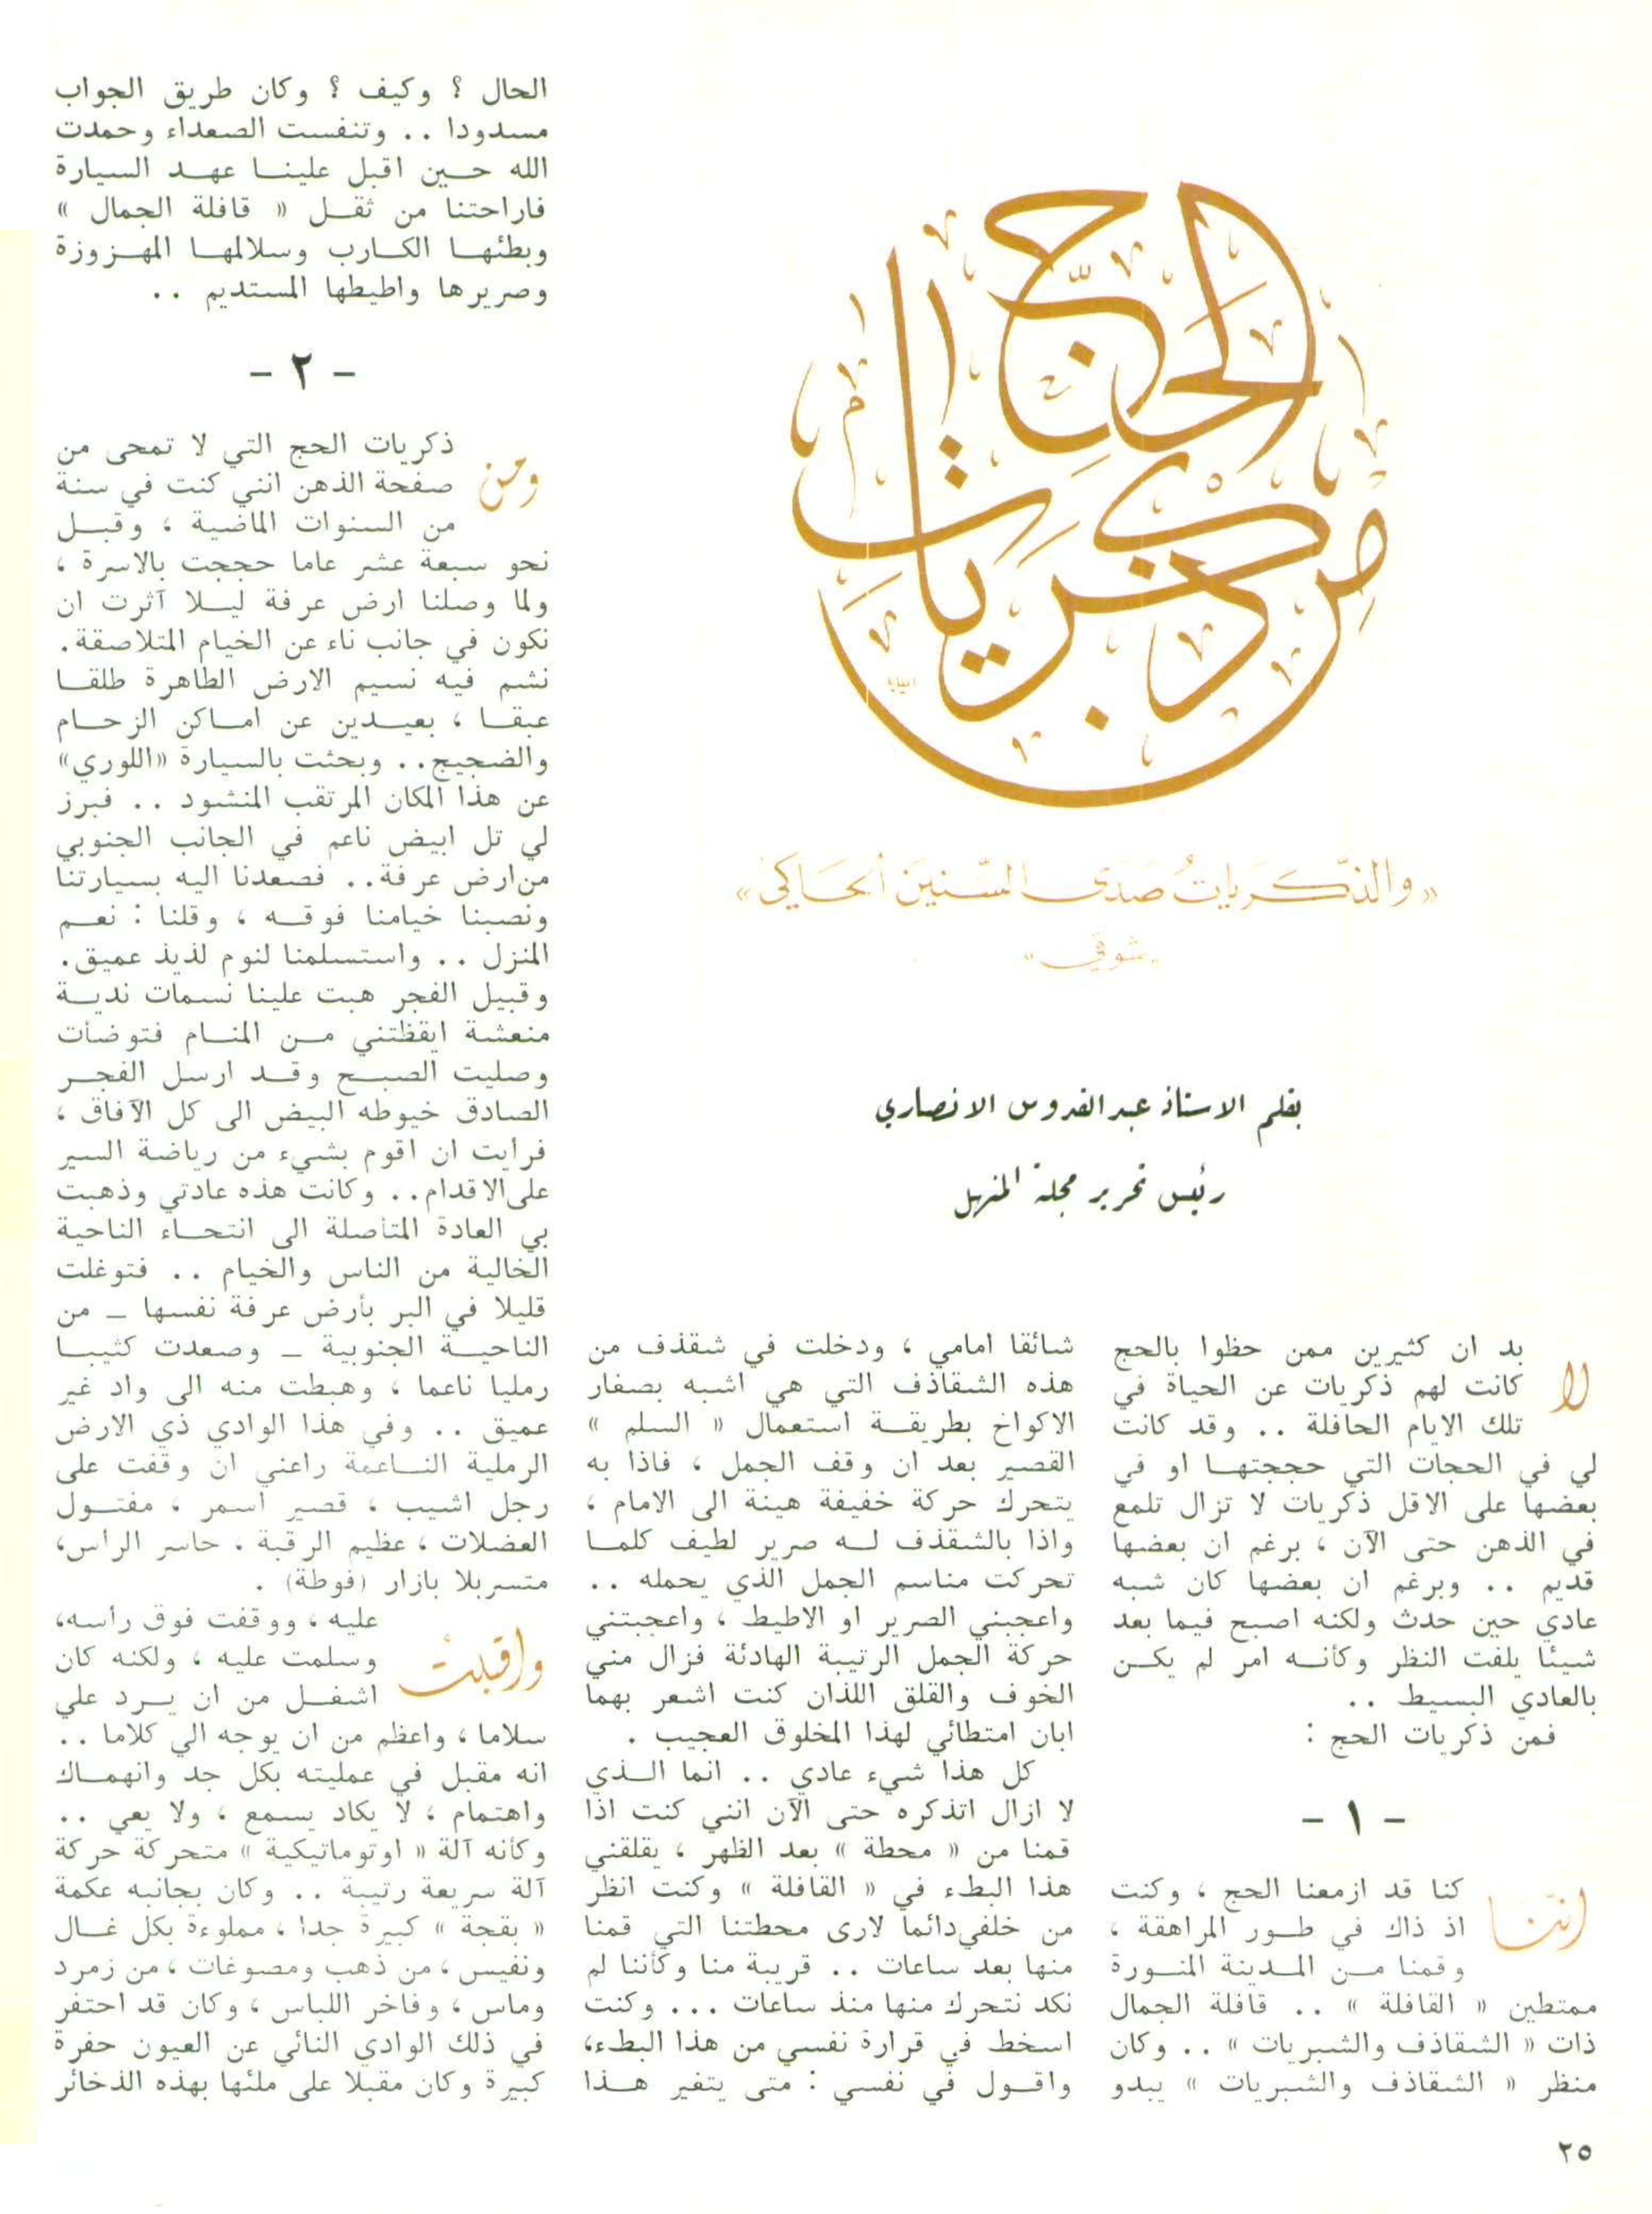 من ذكريات الحج
«والذكريات صدى السنين الحاكي»
«شوقي»
بقلم الاستاذ عبد القدوس الانصاري
رئيس تحرير مجلة المنهل
لا بد ان كثيرين ممن حظوا بالحج
كانت لهم ذكريات عن الحياة في
تلك الايام الحافلة .. وقد كانت
لي في الحجات التي حججتها او في
بعضها على الاقل ذكريات لا تزال تلمع
في الذهن حتى الآن ، برغم ان بعضها
قديم .. وبرغم ان بعضها كان شبه
عادي حين حدث ولكنه اصبح فيما بعد
شيئا يلفت النظر وكأنه امر لم يكن
بالعادي البسيط ..
فمن ذكريات الحج :
- ١ -
اننا كنا قد ازمعنا الحج ، وكنت
اذ ذاك في طور المراهقة ،
وقمنا من المدينة المنورة
ممتطين « القافلة » .. قافلة الجمال
ذات « الشقاذف والشبريات » .. وكان
منظر « الشقاذف والشبريات » يبدو
شائقا امامي ، ودخلت في شقذف من
هذه الشقاذف التي هي اشبه بصغار
الاكواخ بطريقة استعمال « السلم »
القصير بعد ان وقف الجمل ، فاذا به
يتحرك حركة خفيفة هينة الى الامام ،
واذا بالشقذف له صرير لطيف كلما
تحركت مناسم الجمل الذي يحمله ..
واعجبني الصرير او الاطيط ، واعجبتني
حركة الجمل الرتيبة الهادئة فزال مني
الخوف والقلق اللذان كنت اشعر بهما
ابان امتطائي لهذا المخلوق العجيب .
كل هذا شيء عادي .. انما الذي
لا ازال اتذكره حتى الآن انني كنت اذا
قمنا من « محطة » بعد الظهر ، يقلقني
هذا البطء في « القافلة » وكنت انظر
من خلفي دائما لارى محطتنا التي قمنا
منها بعد ساعات .. قريبة منا وكأننا لم
نكد نتحرك منها منذ ساعات ... وكنت
اسخط في قرارة نفسي من هذا البطء،
واقول في نفسي : متى يتغير هذا
الحال ؟ وكيف ؟ وكان طريق الجواب
مسدودا .. وتنفست الصعداء وحمدت
الله حين اقبل علينا عهد السيارة
فاراحتنا من ثقل « قافلة الجمال »
وبطئها الكارب وسلالمها المهزوزة
وصريرها واطيطها المستديم ..
- ٢ -
ومن ذكريات الحج التي لا تمحى من
صفحة الذهن انني كنت في سنة
من السنوات الماضية ، وقبل
نحو سبعة عشر عاما حججت بالاسرة ،
ولما وصلنا ارض عرفة ليلا آثرت ان
نكون في جانب ناء عن الخيام المتلاصقة.
نشم فيه نسيم الارض الطاهرة طلقا
عبقا ، بعيدين عن اماكن الزحام
والضجيج.. وبحثت بالسيارة «اللوري»
عن هذا المكان المرتقب المنشود .. فبرز
لي تل ابيض ناعم في الجانب الجنوبي
من ارض عرفة.. فصعدنا اليه بسيارتنا
ونصبنا خيامنا فوقه ، وقلنا : نعم
المنزل .. واستسلمنا لنوم لذيذ عميق.
وقبيل الفجر هبت علينا نسمات ندية
منعشة ايقظتني من المنام فتوضأت
وصليت الصبح وقد ارسل الفجر
الصادق خيوطه البيض الى كل الآفاق ،
فرأيت ان اقوم بشيء من رياضة السير
على الاقدام.. وكانت هذه عادتي وذهبت
بي العادة المتأصلة الى انتحاء الناحية
الخالية من الناس والخيام .. فتوغلت
قليلا في البر بأرض عرفة نفسها ــ من
الناحية الجنوبية ــ وصعدت كثيبا
رمليا ناعما ، وهبطت منه الى واد غير
عميق .. وفي هذا الوادي ذي الارض
الرملية الناعمة راعني ان وقفت على
رجل اشيب ، قصير اسمر ، مفتول
العضلات ، عظيم الرقبة ، حاسر الرأس،
متسربلا بازار (فوطة) .
واقبلت عليه ، ووقفت فوق رأسه،
وسلمت عليه ، ولكنه كان
اشغل من ان يرد علي
سلاما ، واعظم من ان يوجه الي كلاما ..
انه مقبل في عمليته بكل جد وانهماك
واهتمام ، لا يكاد يسمع ، ولا يعي ..
وكأنه آلة « اوتوماتيكية » متحركة حركة
آلة سريعة رتيبة .. وكان بجانبه عكمة
« بقجة » كبيرة جدا ، مملوءة بكل غال
ونفيس ، من ذهب ومصوغات ، من زمرد
وماس ، وفاخر اللباس ، وكان قد احتفر
في ذلك الوادي النائي عن العيون حفرة
كبيرة وكان مقبلا على ملئها بهذه الذخائر
٢٥